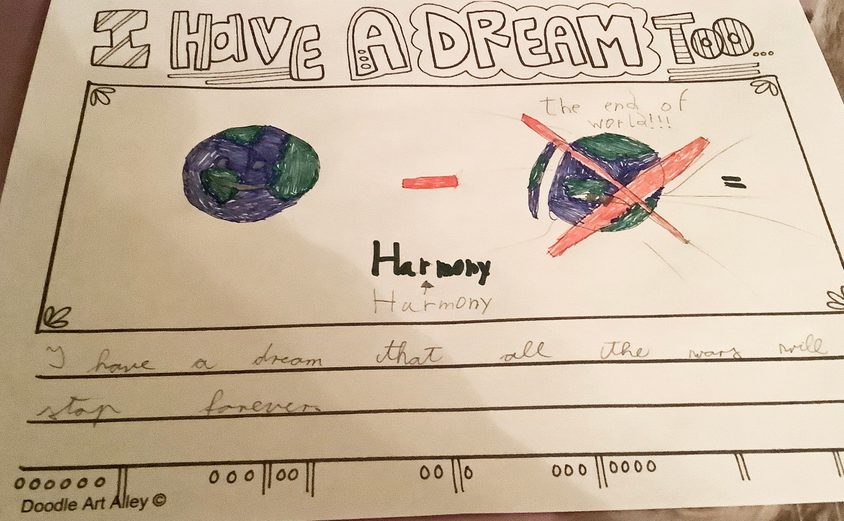 I HAVE A DREAM TOO...
the end of
world!!!
Harmony
Harmony
I have a dream that all the wars will
stop forever
Doodle Art Alley ©